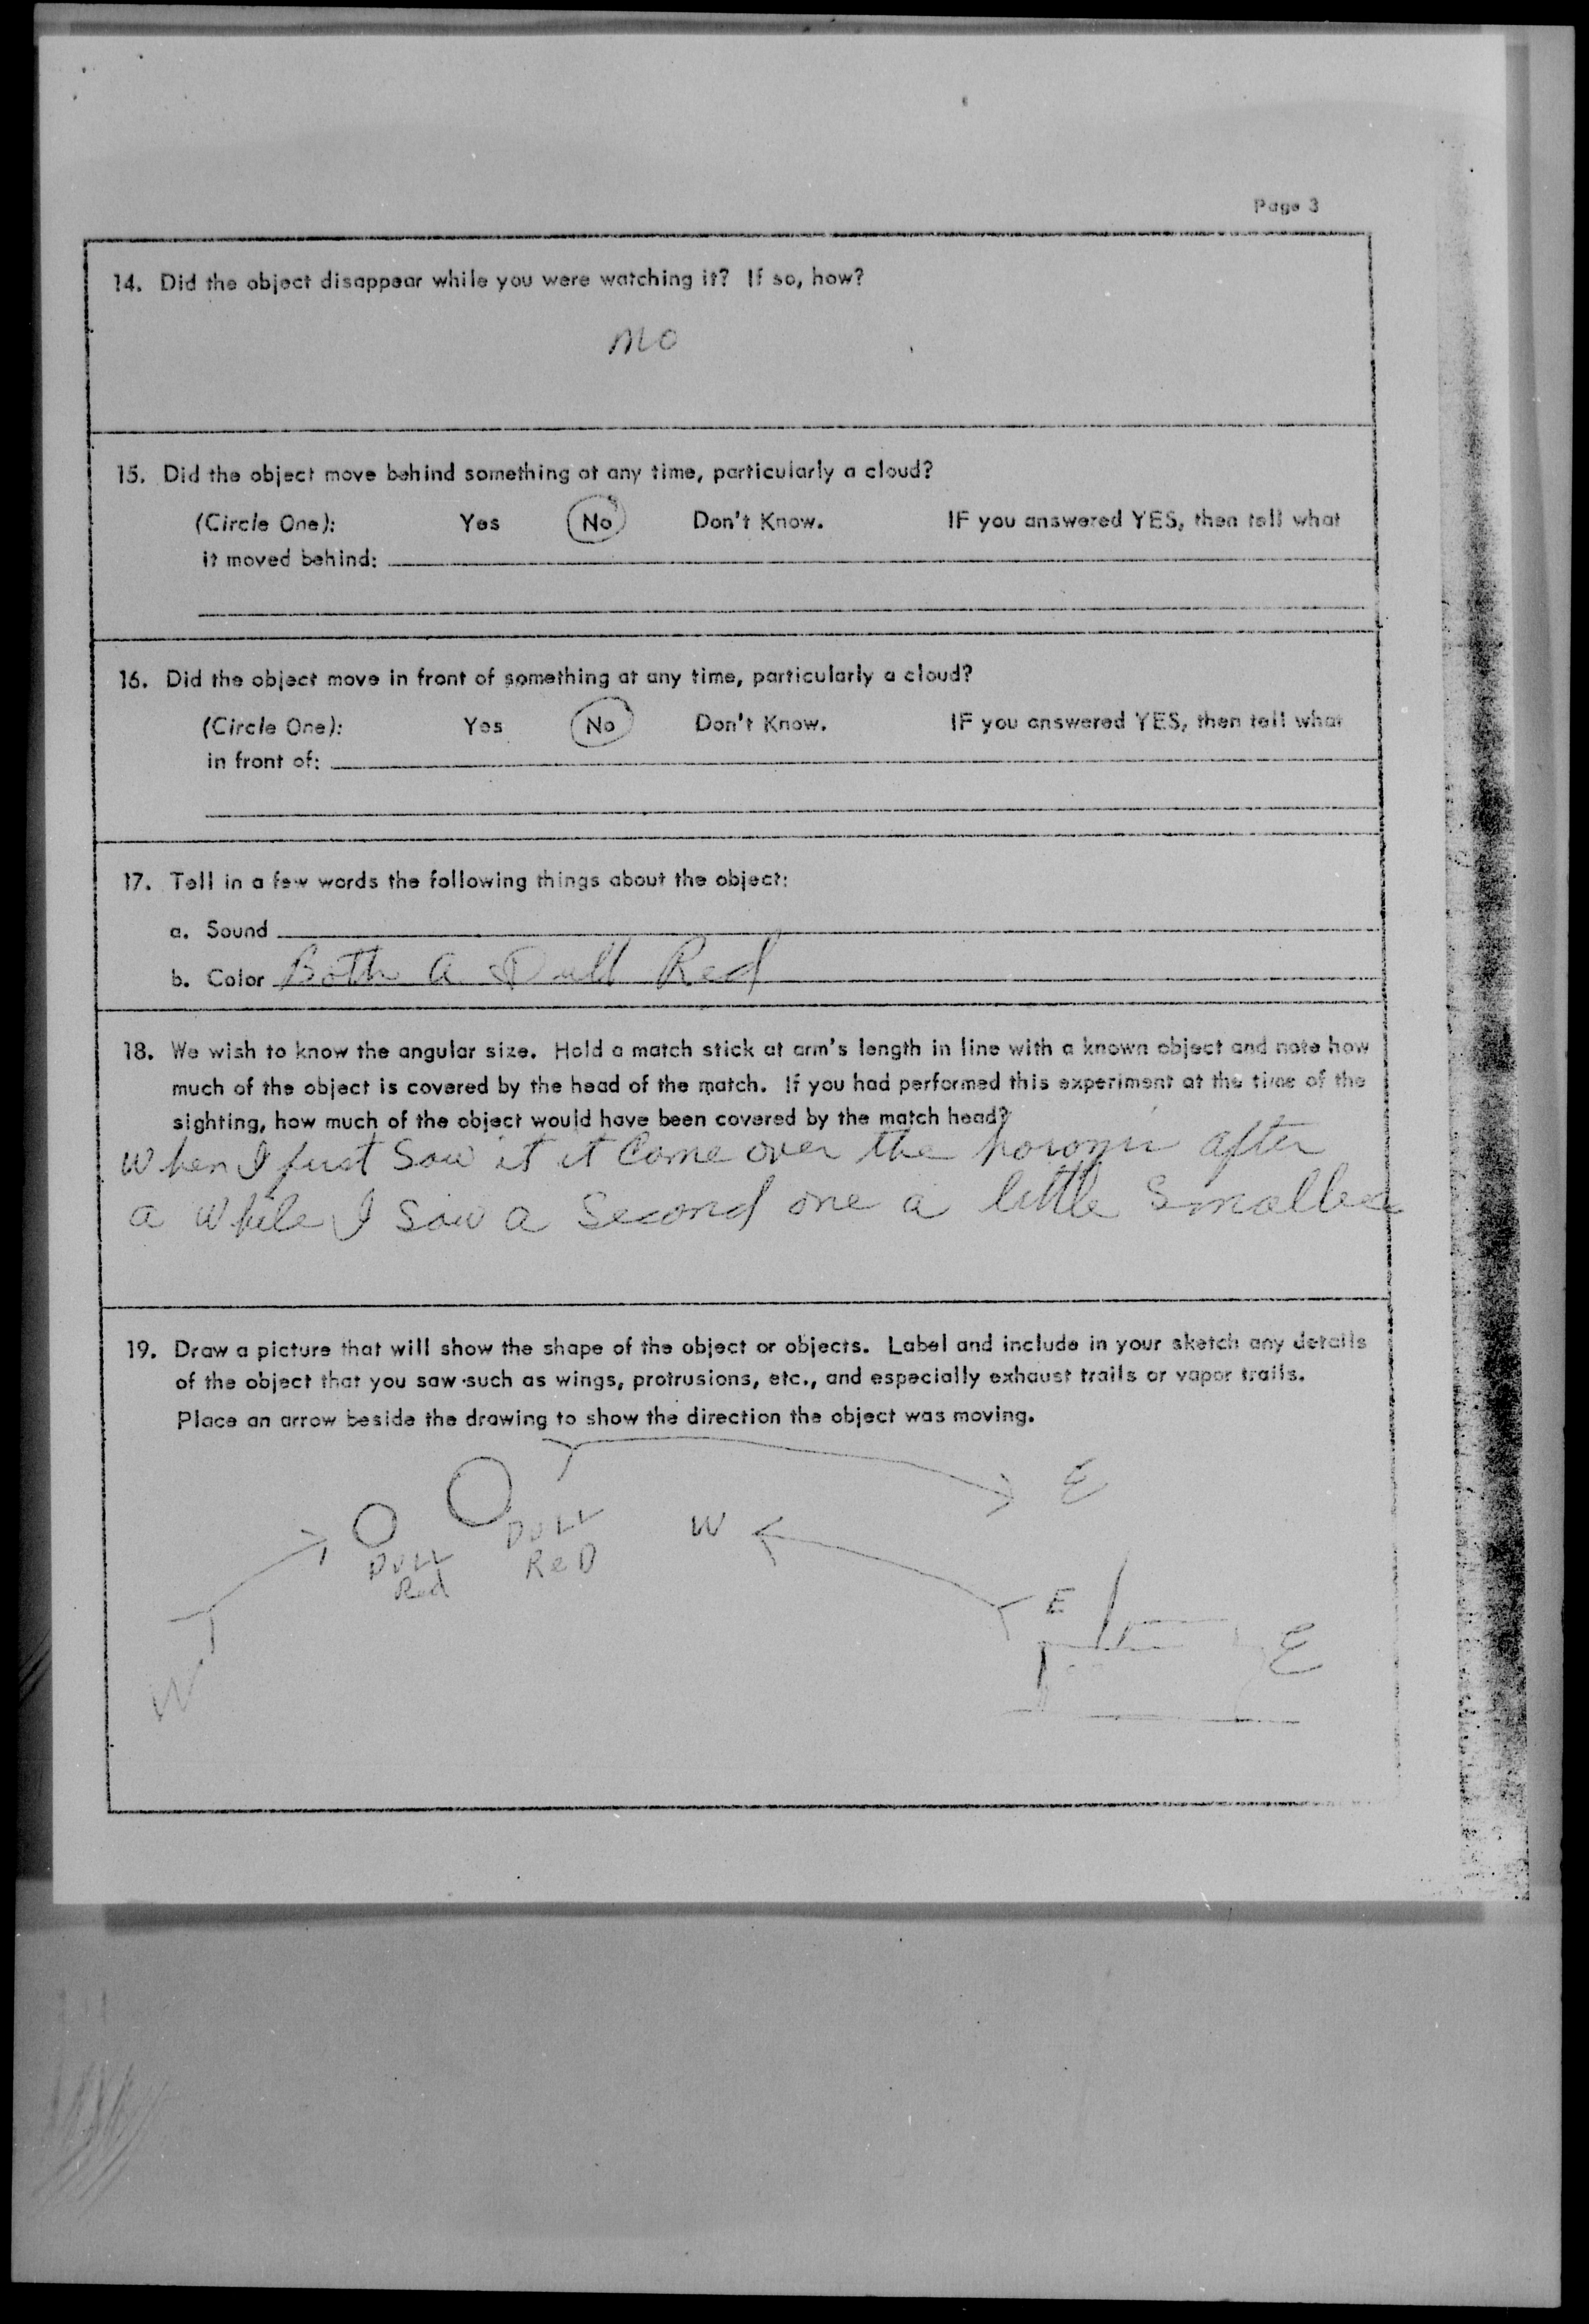 Page 3
14. Did the object disappear while you were watching it? If so, how?
no
15. Did the object move behind something at any time, particularly a cloud?
(Circle One): Yes No Don't Know. IF you answered YES, then tell what
it moved behind:
16. Did the object move in front of something at any time, particularly a cloud?
(Circle One): Yes No Don't Know. IF you answered YES, then tell what
in front of:
17. Tell in a few words the following things about the object:
a. Sound
b. Color Both a Dull Red
18. We wish to know the angular size. Hold a match stick at arm's length in line with a known object and note how
much of the object is covered by the head of the match. If you had performed this experiment at the time of the
sighting, how much of the object would have been covered by the match head?
When I first Saw it it Come over the after
a while I saw a Second one a little Smaller
19. Draw a picture that will show the shape of the object or objects. Label and include in your sketch any details
of the object that you saw such as wings, protrusions, etc., and especially exhaust trails or vapor trails.
Place an arrow beside the drawing to show the direction the object was moving.
E
W
DULL
ReD
DULL
Red
E
E
W